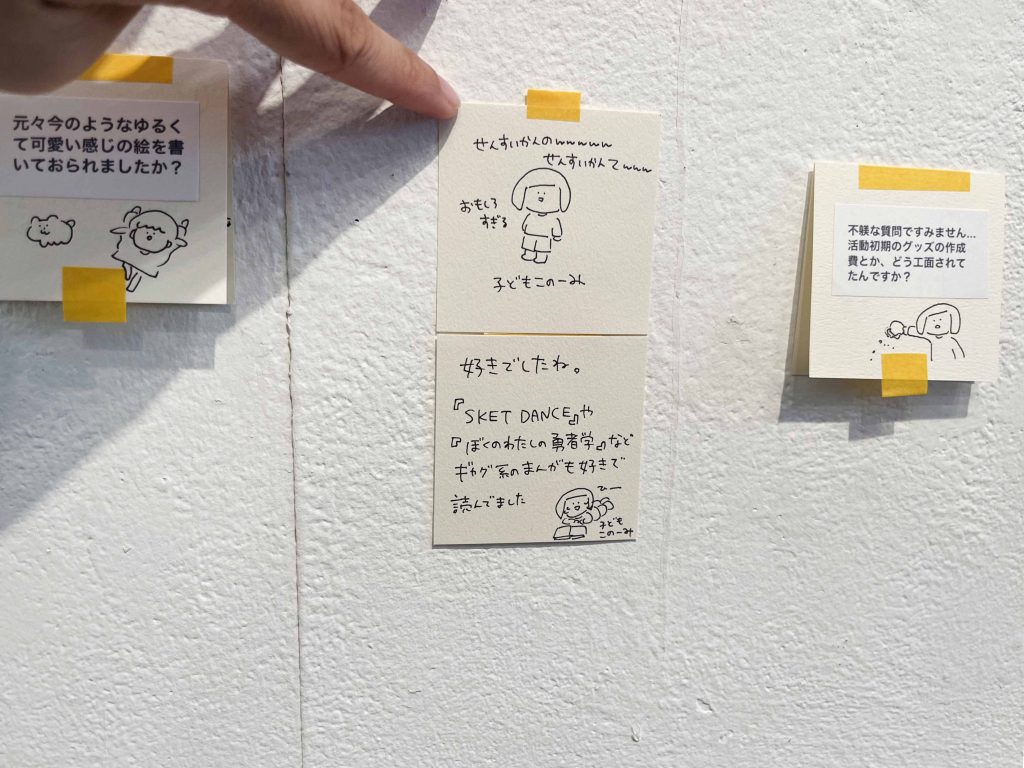 元々今のようなゆるく
て可愛い感じの絵を書
いておられましたか？
せんすいかんのwwwww
せんすいかんてwww
おもしろ
すぎる
子どもこのーみ
好きでしたね。
『SKET DANCE』や
『ぼくのわたしの勇者学』など
ギャグ系のまんがも好きで
読んでました
ひー
子ども
このーみ
不躾な質問ですみません...
活動初期のグッズの作成
費とか、どう工面されて
たんですか？